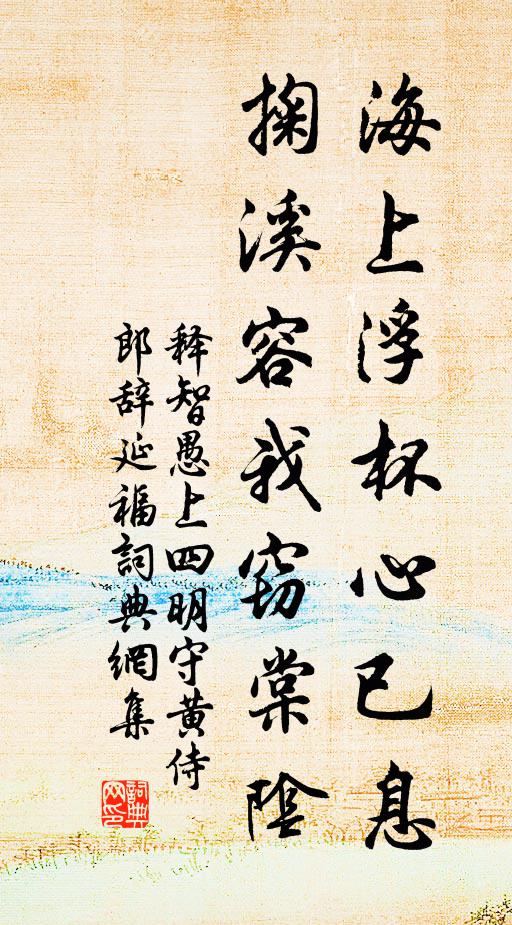 海上浮杯心已息
掬溪容我窃棠阴
释智愚上四明守黄侍
郎辞延福詞典網集
詞典
网印